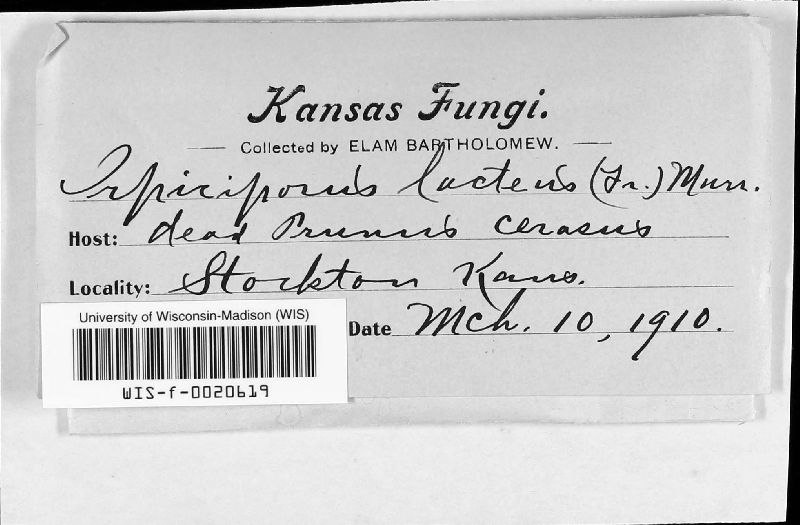 Kansas Fungi.
Collected by ELAM BARTHOLOMEW.
Irpiciporus lacteus (Fr.) Murr.
Host: dead Prunus cerasus
Locality: Stockton Kans.
Date Mch. 10, 1910.
University of Wisconsin-Madison (WIS)
WIS-f-0020619